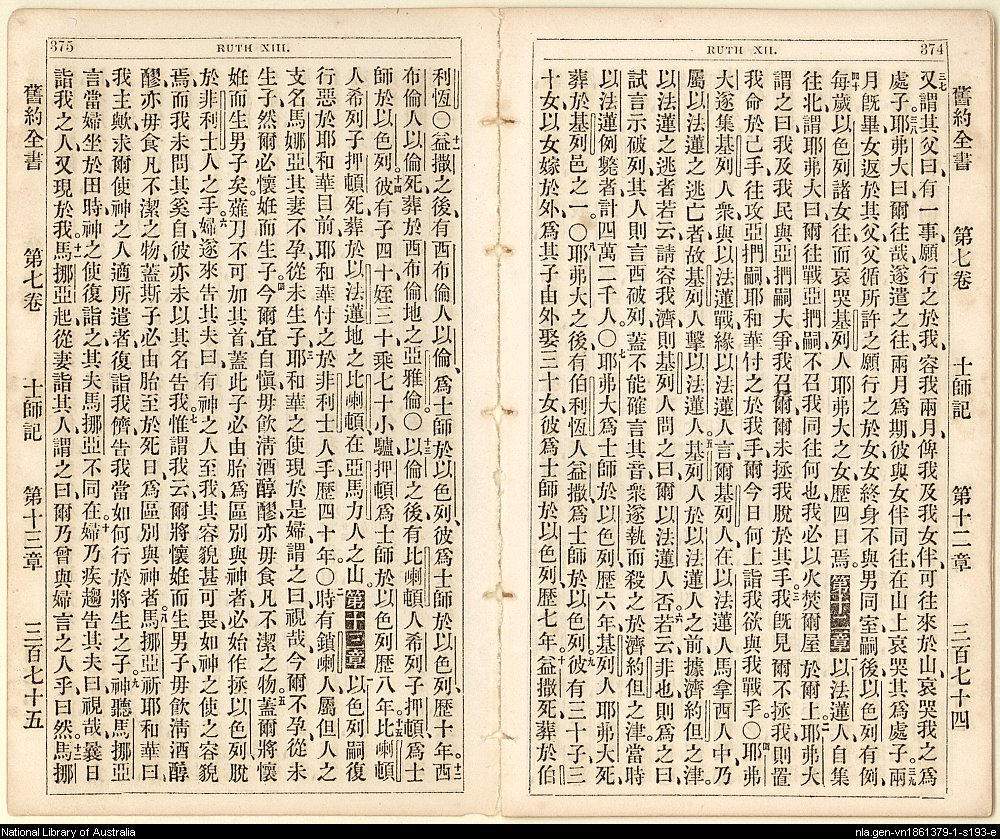 374
RUTH XII.
舊約全書 第七卷 士師記 第十二章 三百七十四
又謂其父曰、有一事、願行之於我、容我兩月、俾我及我女伴、可往來於山、哀哭我之爲
處子。耶弗大曰、爾往哉、遂遣之往、兩月爲期、彼與女伴同往、在山上哀哭其爲處子、兩
月旣畢、女返於其父、父循所許之願行之於女、女終身不與男同室、嗣後以色列有例、
每歲以色列諸女往而哀哭基列人耶弗大之女、歷四日焉。第十二章 以法蓮人自集
往北、謂耶弗大曰、爾往戰亞捫嗣、不召我同往何也、我必以火焚爾屋於爾上、耶弗大
謂之曰、我及我民、與亞捫嗣大爭、我召爾、爾未拯我脫於其手、我旣見爾不拯我、則置
我命於己手、往攻亞捫嗣、耶和華付之於我手、爾今日何上詣我、欲與我戰乎。○耶弗
大遂集基列人衆、與以法蓮戰、緣以法蓮人言、爾基列人在以法蓮人馬拿西人中、乃
屬以法蓮之逃亡者、故基列人擊以法蓮人、基列人於以法蓮人之前、據濟約但之津、
以法蓮之逃者若云、請容我濟、則基列人問之曰、爾以法蓮人否、若云非也、則爲之曰、
試言示破列、其人則言西破列、蓋不能確言其音、衆遂執而殺之於濟約但之津、當時
以法蓮例斃者、計四萬二千人。○耶弗大爲士師於以色列歷六年、基列人耶弗大死
葬於基列邑之一。○耶弗大之後有伯利恆人益撒爲士師於以色列、彼有三十子、三
十女、以女嫁於外、爲其子由外娶三十女、彼爲士師於以色列歷七年、益撒死、葬於伯
RUTH XIII.
375
利恆。○益撒之後、有西布倫人以倫、爲士師於以色列、彼爲士師於以色列、歷十年。西
布倫人以倫死、葬於西布倫地之亞雅倫。○以倫之後有比喇頓人希列子押頓、爲士
師於以色列。彼有子四十、姪三十、乘七十小驢、押頓爲士師於以色列歷八年。比喇頓
人希列子押頓死、葬於以法蓮地之比喇頓、在亞馬力人之山。第十三章 以色列嗣復
行惡於耶和華目前、耶和華付之於非利士人手、歷四十年。○時有鎖喇人屬但人之
支名馬娜亞、其妻不孕、從未生子、耶和華之使現於是婦、謂之曰、視哉、今爾不孕、從未
生子、然爾必懷姙而生子。今爾宜自愼、毋飲淸酒醇醪、亦毋食凡不潔之物、蓋爾將懷
姙而生男子矣、薙刀不可加其首、蓋此子必由胎爲區別與神者、必始作拯以色列脫
於非利士人之手。婦遂來告其夫曰、有神之人至我、其容貌甚可畏、如神之使之容貌
焉、而我未問其奚自、彼亦未以其名告我、惟謂我云、爾將懷姙而生男子、毋飲淸酒醇
醪、亦毋食凡不潔之物、蓋斯子必由胎至於死日、爲區別與神者。馬挪亞祈耶和華曰、
我主歟、求爾使神之人適所遣者復詣我儕、告我當如何行於將生之子。神聽馬挪亞
言、當婦坐於田時、神之使復詣之、其夫馬挪亞不同在、婦乃疾趨告其夫曰、視哉、曩日
詣我之人又現於我。馬挪亞起、從妻詣其人、謂之曰、爾乃曾與婦言之人乎、曰、然。馬挪
舊約全書 第七卷 士師記 第十三章 三百七十五
National Library of Australia
nla.gen-vn1861379-1-s193-e